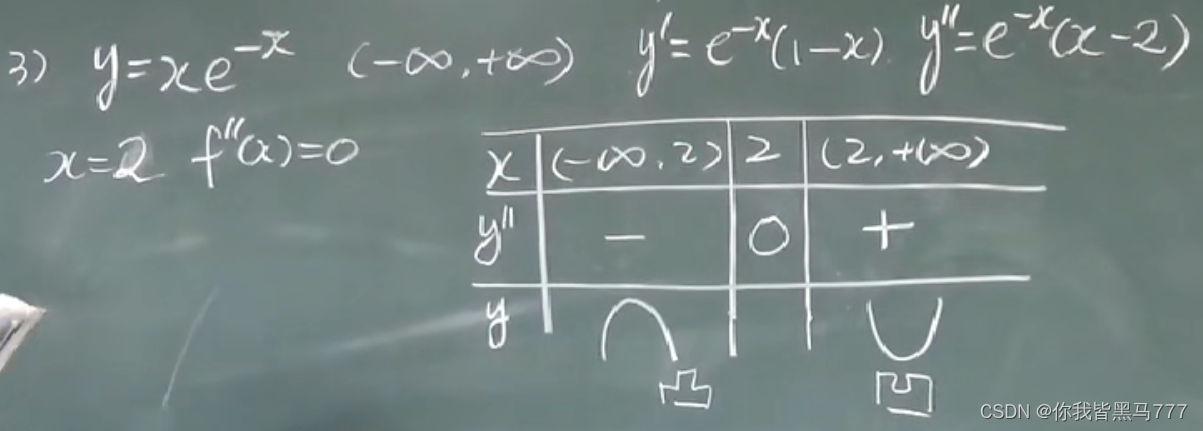 3) y=xe^{-x} (-∞,+∞) y'=e^{-x}(1-x) y''=e^{-x}(x-2)
x=2 f''(x)=0
x (-∞,2) 2 (2,+∞)
y'' − 0 +
y
凸 凹
CSDN @你我皆黑马777